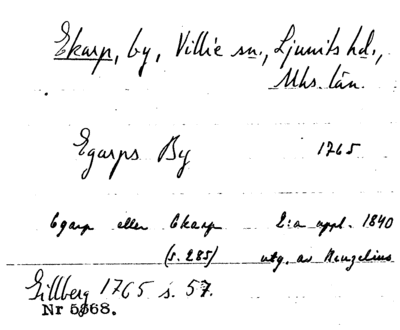 Ekarp, by, Villie sn., Ljunits hd.,
Mhs. län.
Egarps By 1765
Egarp eller Ekarp 2:a uppl. 1840
(s. 285) utg. av
Gillberg 1765 s. 57.
Nr 5068.